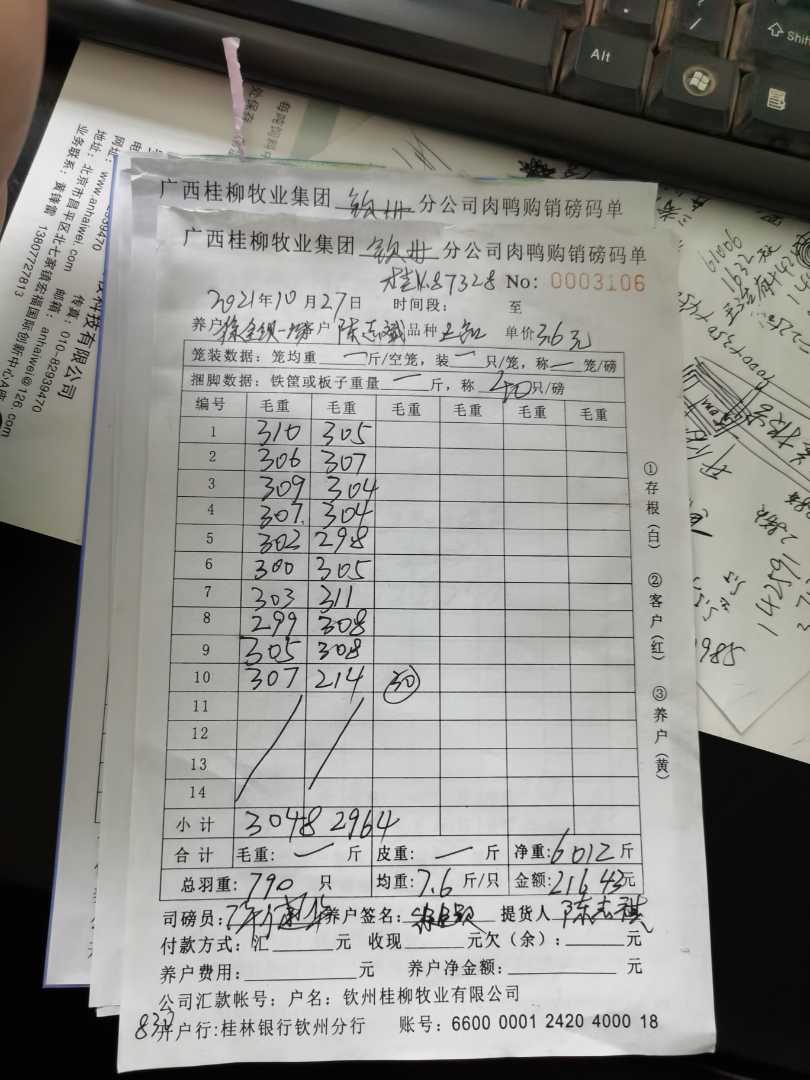 Alt
Shift
广西桂柳牧业集团 钦州 分公司肉鸭购销磅码单
广西桂柳牧业集团 钦州 分公司肉鸭购销磅码单
桂N.87328 No: 0003106
2021年10月27日 时间段: 至
养户 户 陈志 品种 单价3.6元
笼装数据: 笼均重 一 斤/空笼, 装 一 只/笼, 称 一 笼/磅
捆脚数据: 铁筐或板子重量 一 斤, 称 40 只/磅
编号 毛重 毛重 毛重 毛重 毛重 毛重
1 310 305
2 306 307
3 309 304
4 307 304
5 303 298
6 300 305
7 303 311
8 299 308
9 305 308
10 307 214 30
11
12
13
14
小计 3048 2964
合计 毛重: 一 斤 皮重: 一 斤 净重: 6012 斤
总羽重: 790 只 均重: 7.6 斤/只 金额: 21643元
司磅员: 养户签名: 提货人 陈志
付款方式: 汇 元 收现 元欠(余): 元
养户费用: 元 养户净金额: 元
公司汇款帐号: 户名: 钦州桂柳牧业有限公司
开户行: 桂林银行钦州分行 账号: 6600 0001 2420 4000 18
①存根(白) ②客户(红) ③养户(黄)
科技有限公司
传真: 010-82939470
地址: 北京市昌平区北七家镇宏福国际创新中心A座
网址: www.anhaiwei.com 邮箱: anhaiwei@126.com
13807727813
1985